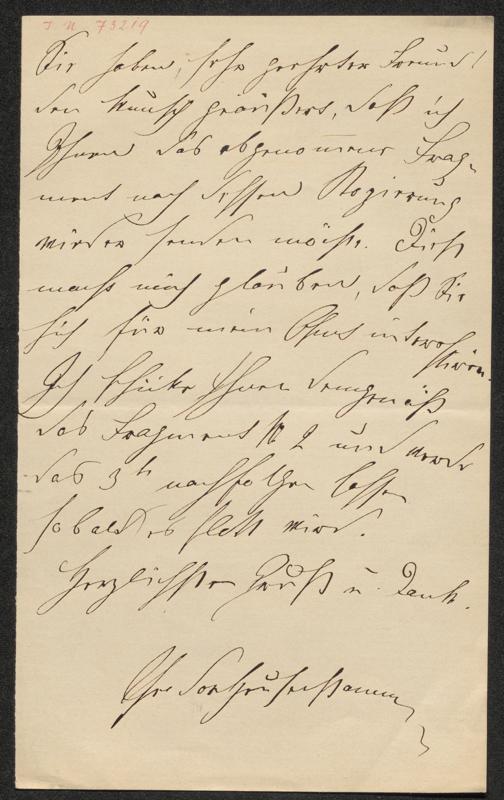 J. N. 73219
Sie haben, sehr geehrter Freund!
den Wunsch geäußert, daß ich
Ihnen das abgenommene Frag-
ment nach dessen Kopierung
wieder senden möchte. Dieß
macht mich glauben, daß Sie
sich für mein Opus interes
sieren.
Ich schicke Ihnen demgemäß
das Fragment N 2 und werde
das 3te nachfolgen lassen
sobald es flott wird.
Herzlichsten Gruß u. Dank.
Ihr